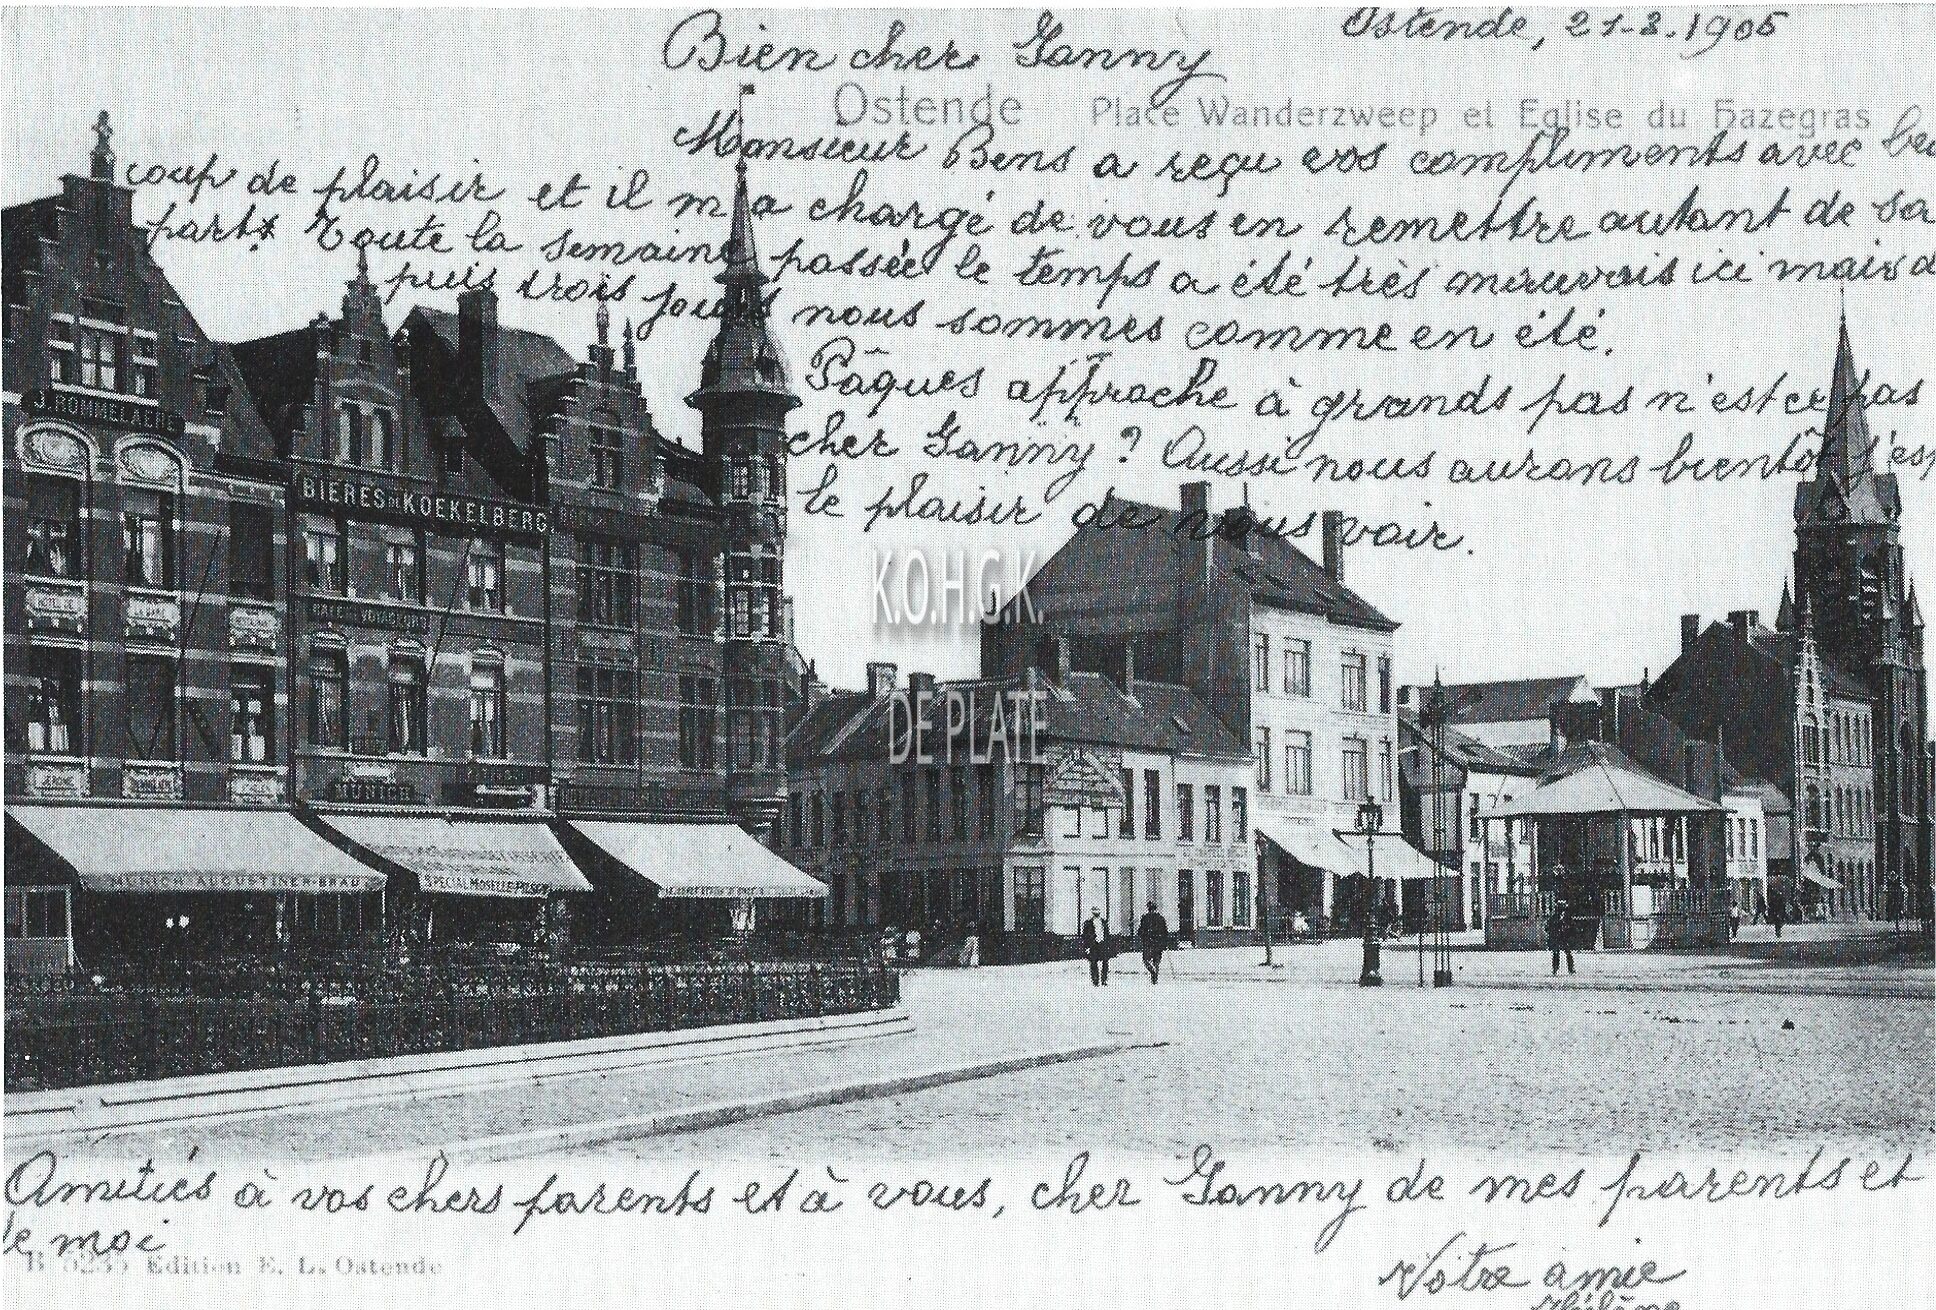 Ostende, 21-3.1905
Bien cher Ganny
Ostende Place Wanderzweep et Eglise du Hazegras
Monsieur Bens a reçu vos compliments avec beau
coup de plaisir et il m'a chargé de vous en remettre autant de sa
part. Toute la semaine passée le temps a été très mauvais ici mais d
puis trois jours nous sommes comme en été.
Pâques approche à grands pas n'est ce pas
cher Ganny? Aussi nous aurons bientôt l'esp
le plaisir de vous voir.
J. ROMMELAERE
BIERES DE KOEKELBERG
MUNICH
MUNICH AUGUSTINER-BRAU
SPECIAL MOSELLE PILSEN
K.O.H.G.K.
DE PLATE
Amitiés à vos chers parents et à vous, cher Ganny de mes parents et
de moi
B 5235 Edition E. L. Ostende
Votre amie
Hélène